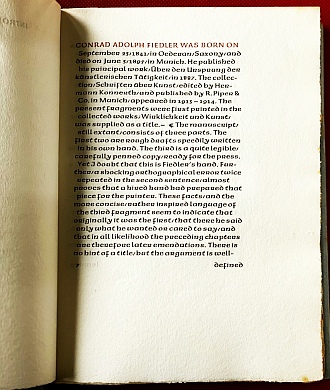 CONRAD ADOLPH FIEDLER WAS BORN ON
September 23/1841/in Oederan/Saxony/and
died on June 3/1895/in Munich. He published
his principal work/Über den Ursprung der
künstlerischen Tätigkeit/in 1887. The collec-
tion/Schriften über Kunst/edited by Her-
mann Konnerth/and published by R. Piper &
Co. in Munich/appeared in 1913 – 1914. The
present fragments were first printed in the
collected works/Wirklichkeit und Kunst/
was supplied as a title. – The manuscript/
still extant/consists of three parts. The
first two are rough drafts speedily written
in his own hand. The third is a quite legible/
carefully penned copy/ready for the press.
Yet I doubt that this is Fiedler's hand. Fur-
ther/a shocking orthographical error twice
repeated in the second sentence/almost
proves that a hired hand had prepared that
piece for the printer. These facts/and the
more concise/rather inspired language of
the third fragment seem to indicate that
originally it was the first/that there he said
only what he wanted or cared to say/and
that in all likelihood the preceding chapters
are therefore later emendations. There is
no hint of a title/but the argument is well-
defined